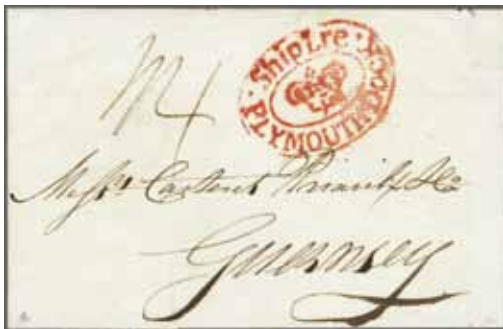 Ship Lre
PLYMOUTH DOCK
Messrs. Carteret Priaulx & Co
Guernsey